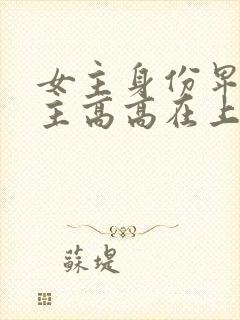 女主身份卑
主高高在上
蘇堤